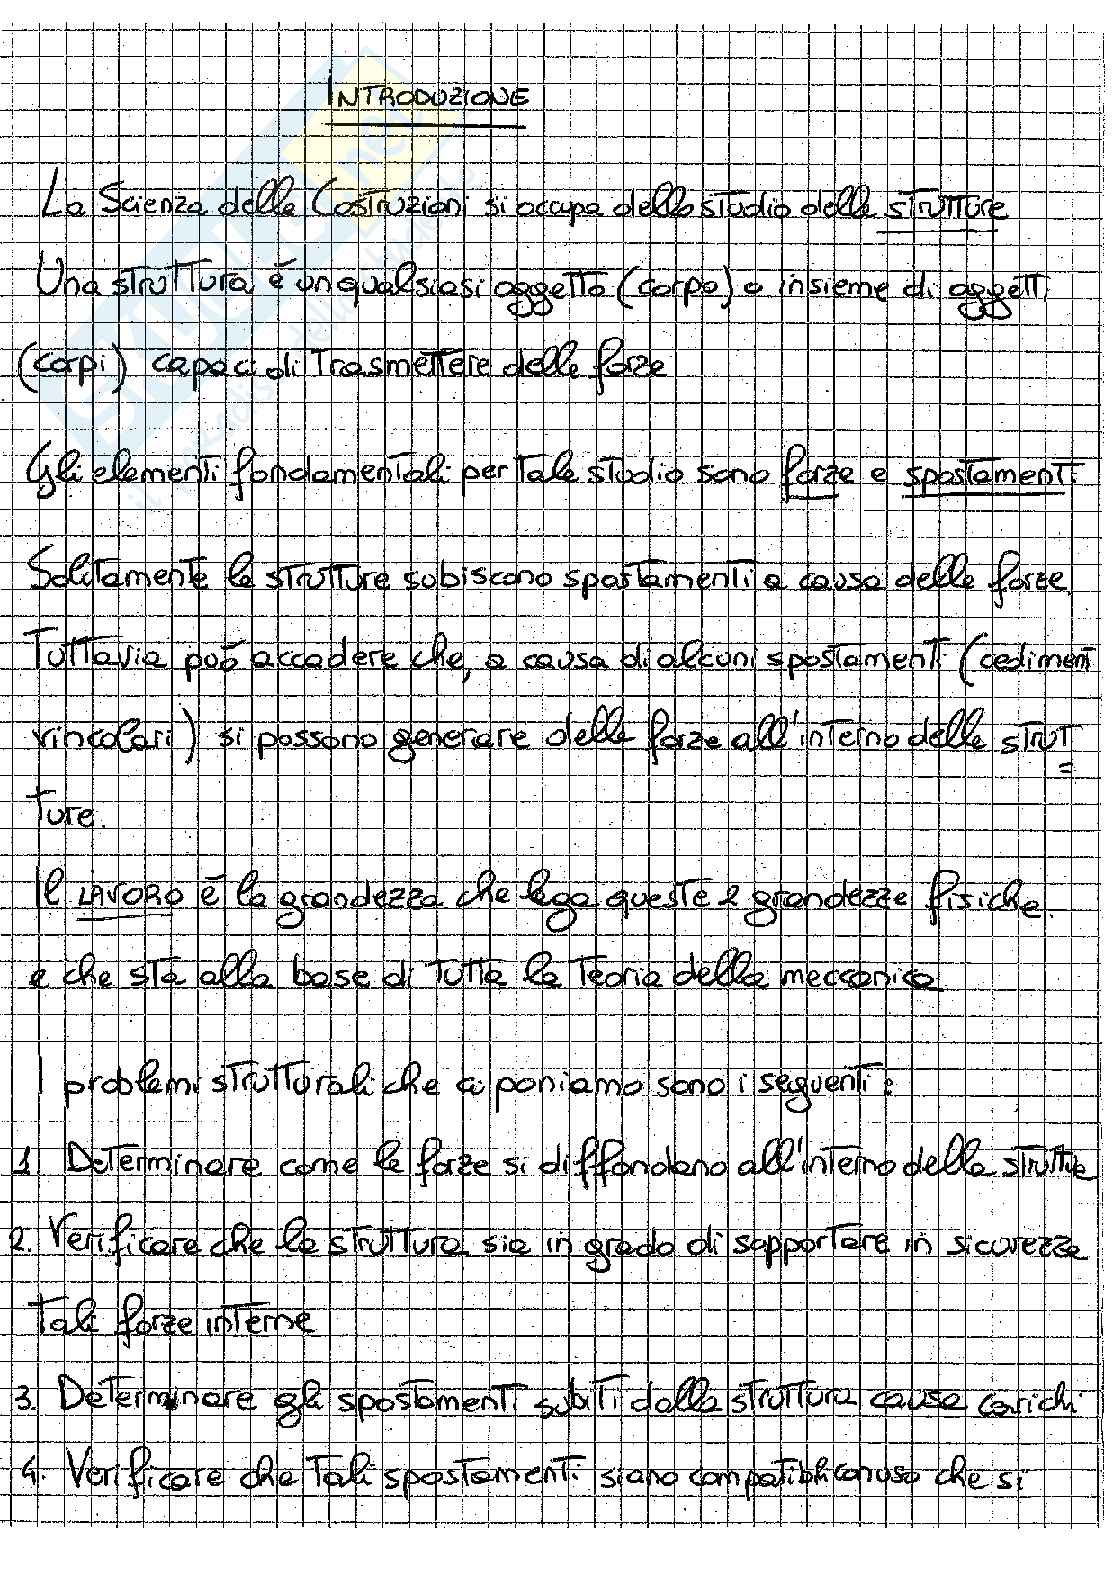 INTRODUZIONE
La Scienza delle Costruzioni si occupa dello studio delle strutture
Una struttura è un qualsiasi oggetto (corpo) o insieme di oggetti
(corpi) capaci di trasmettere delle forze
Gli elementi fondamentali per tale studio sono forze e spostamenti
Solitamente le strutture subiscono spostamenti a causa delle forze.
Tuttavia può accadere che, a causa di alcuni spostamenti (cedimenti
vincolari) si possono generare delle forze all'interno delle strut=
ture.
Il LAVORO è la grandezza che lega queste 2 grandezze fisiche.
e che sta alla base di tutta la teoria della meccanica
I problemi strutturali che ci poniamo sono i seguenti:
1. Determinare come le forze si diffondano all'interno della struttura
2. Verificare che la struttura sia in grado di sopportare in sicurezza
tali forze interne
3. Determinare gli spostamenti subiti dalla struttura causa carichi
4. Verificare che tali spostamenti siano compatibili con uso che si